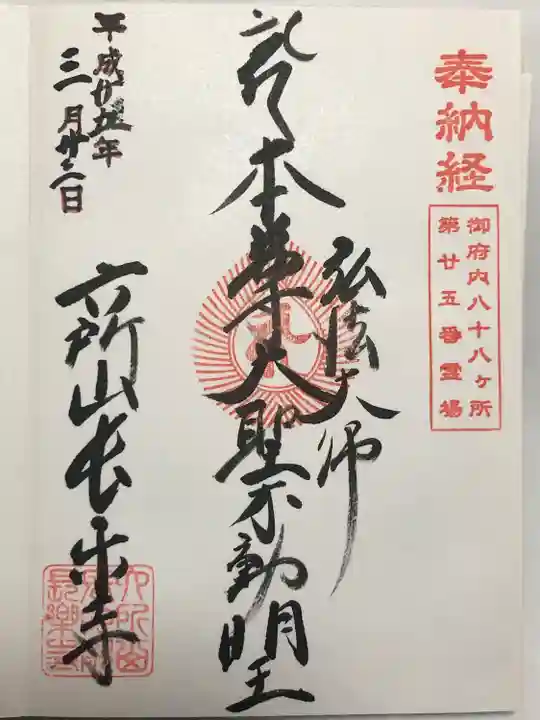 奉納経
御府内八十八ヶ所
第廿五番霊場
弘法大師
本尊大聖不動明王
平成廿五年
三月廿三日
六所山長楽寺
六所山
長楽寺